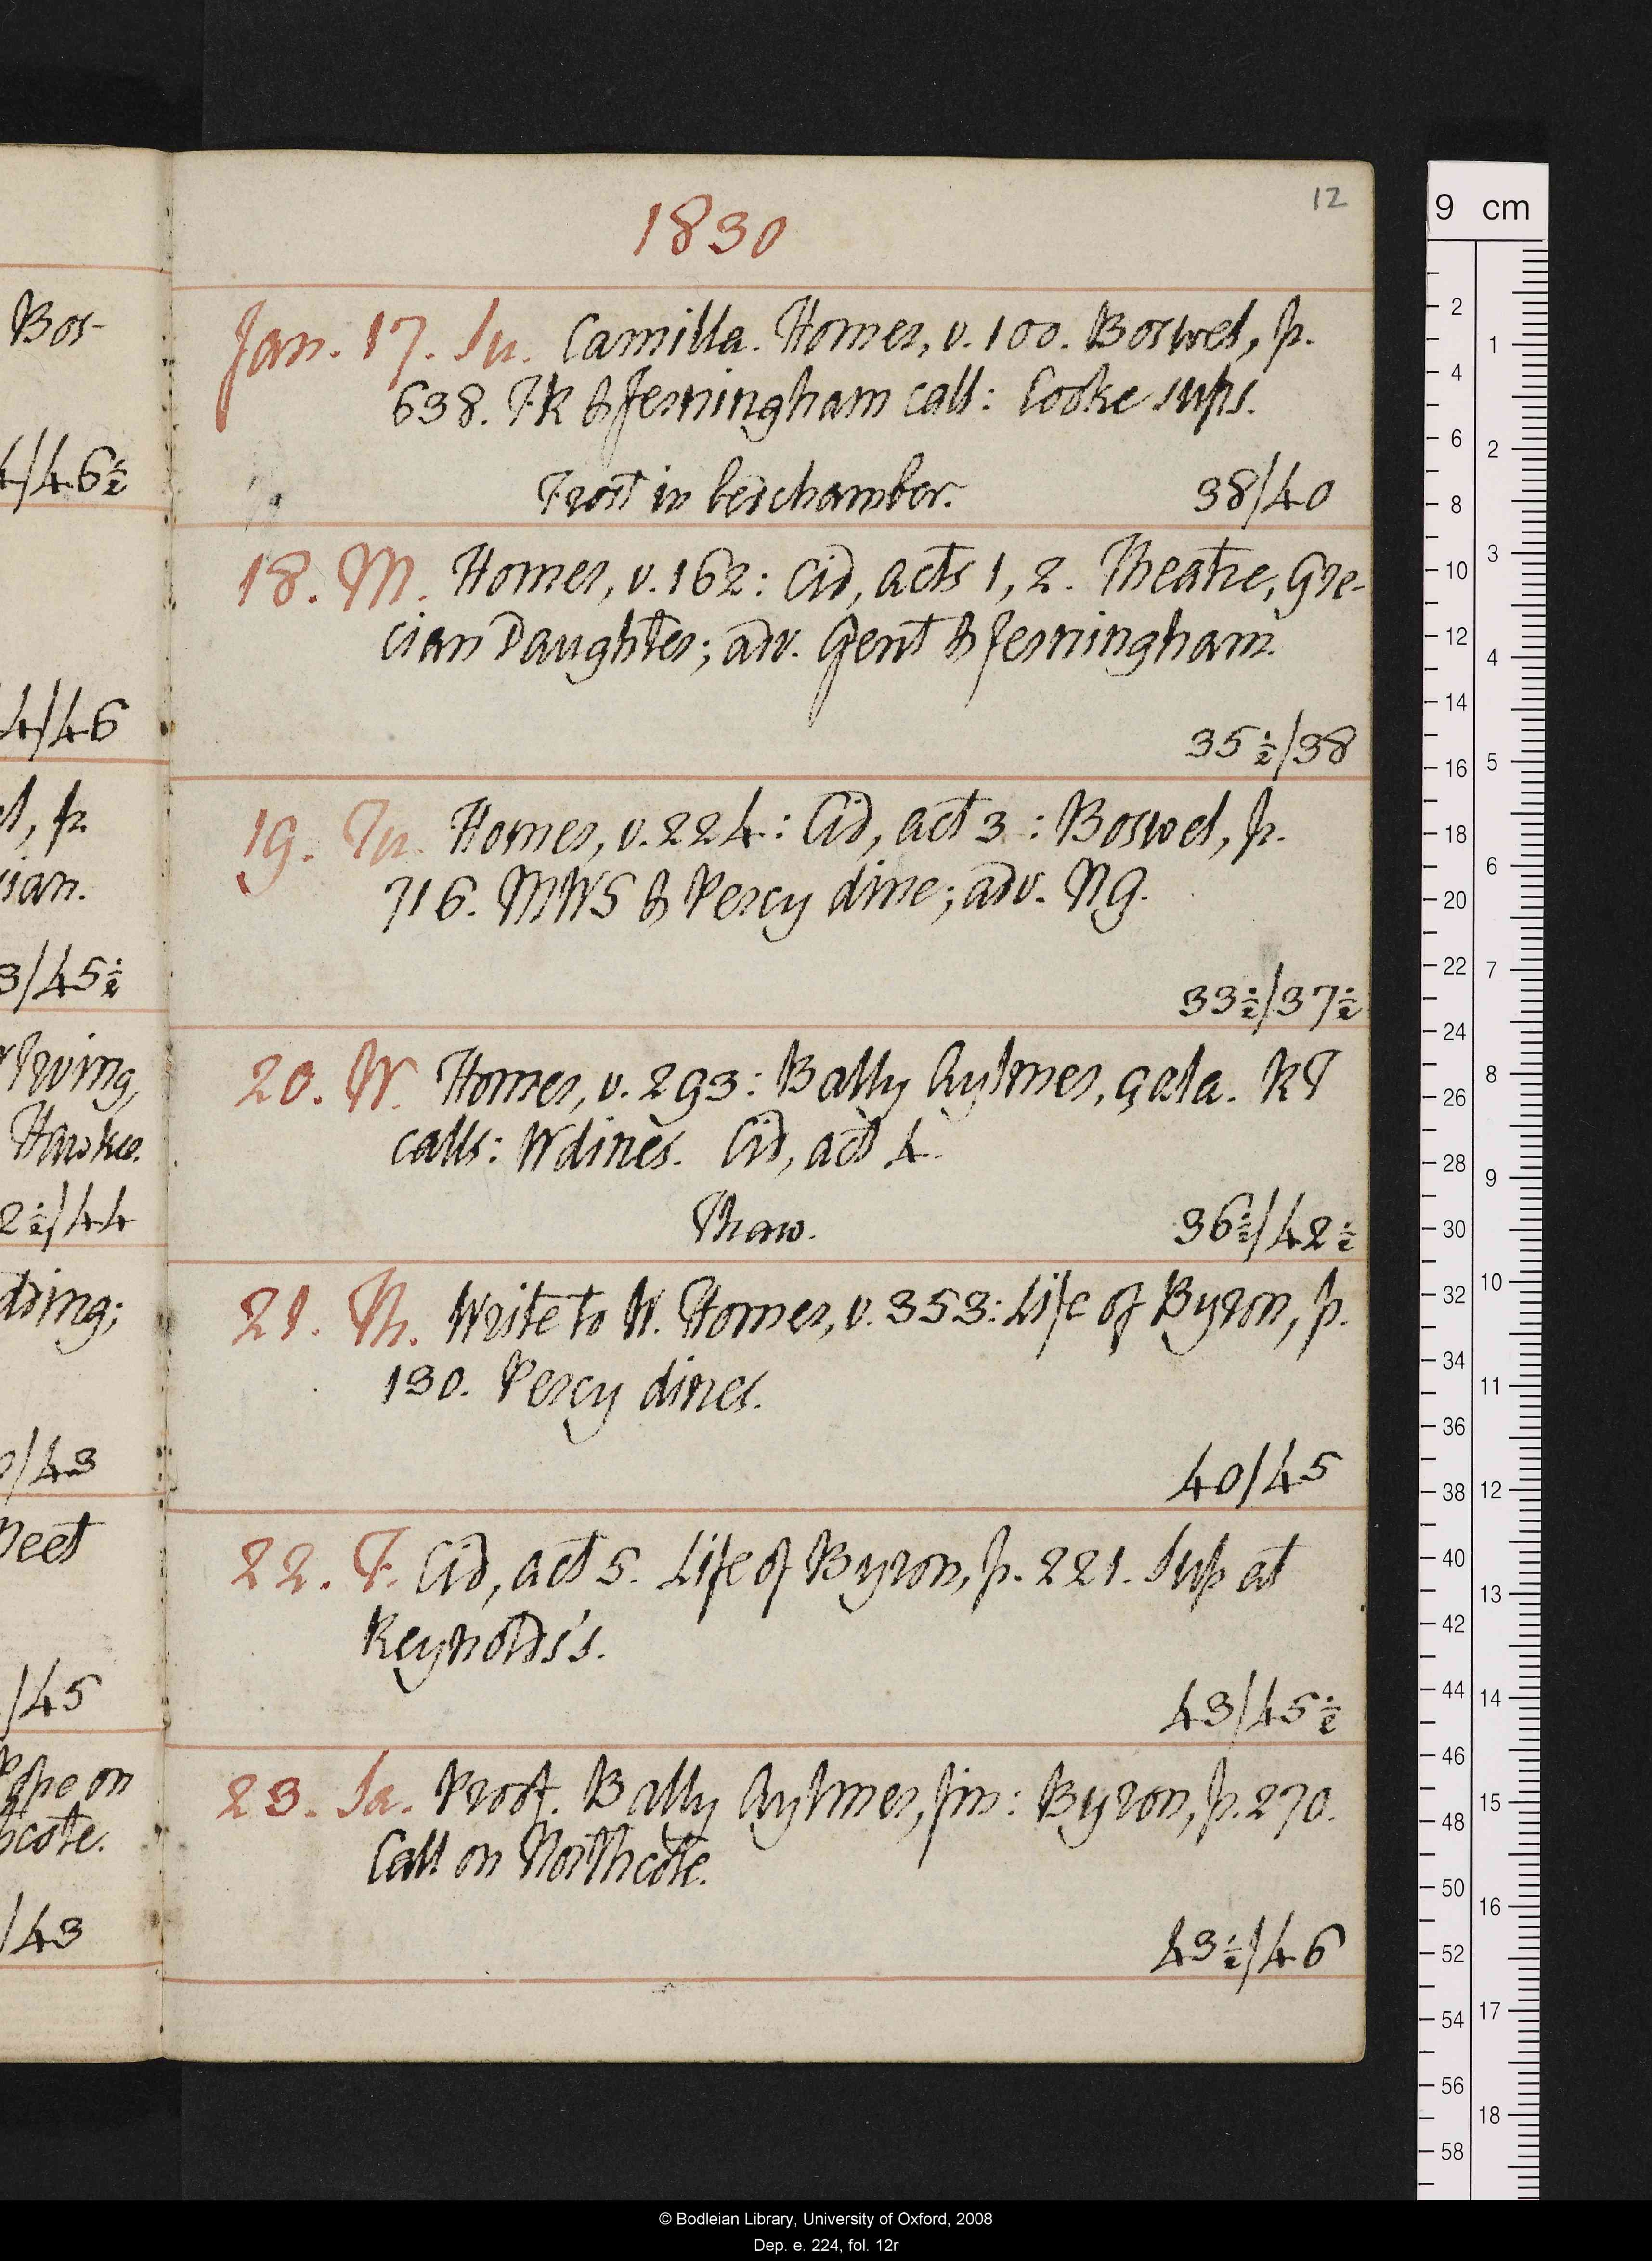 12
1830
Jan. 17. Su. Camilla. Homer, v. 100. Boswel, p.
638. FK & Jerningham call: Cooke sups.
Frost in bedchamber. 38/40
18. M. Homer, v. 162: Cid, acts 1, 2. Theatre, Gre-
cian Daughter; adv. Gent & Jerningham.
35½/38
19. Tu. Homer, v. 224: Cid, act 3: Boswel, p.
716. MWS & Percy dine; adv. Ng.
33½/37½
20. W. Homer, v. 293: Bally Aylmer, çala. KT
calls: W dines. Cid, act 4.
Thaw. 36½/42½
21. Th. Write to W. Homer, v. 353: Life of Byron, p.
130. Percy dines.
40/45
22. F. Cid, act 5. Life of Byron, p. 221. Sup at
Reynolds's.
43/45½
23. Sa. Proof. Bally Aylmer, fin: Byron, p. 270.
Call on Northcote.
43½/46
Bos-
4/46½
4/46
p.
ian.
3/45½
Irving,
Hawke.
2½/44
ding;
/43
eet
/45
Pope on
cote.
/43
9 cm
2
4
6
8
10
12
14
16
18
20
22
24
26
28
30
32
34
36
38
40
42
44
46
48
50
52
54
56
58
1
2
3
4
5
6
7
8
9
10
11
12
13
14
15
16
17
18
© Bodleian Library, University of Oxford, 2008
Dep. e. 224, fol. 12r